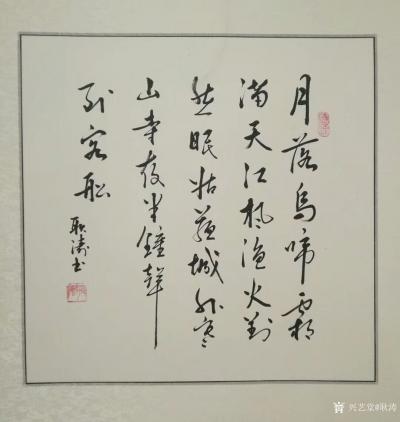 月落烏啼霜
满天江枫渔火對
愁眠姑蘇城外寒
山寺夜半鐘聲
到客船
耿涛书
兴艺堂@耿涛